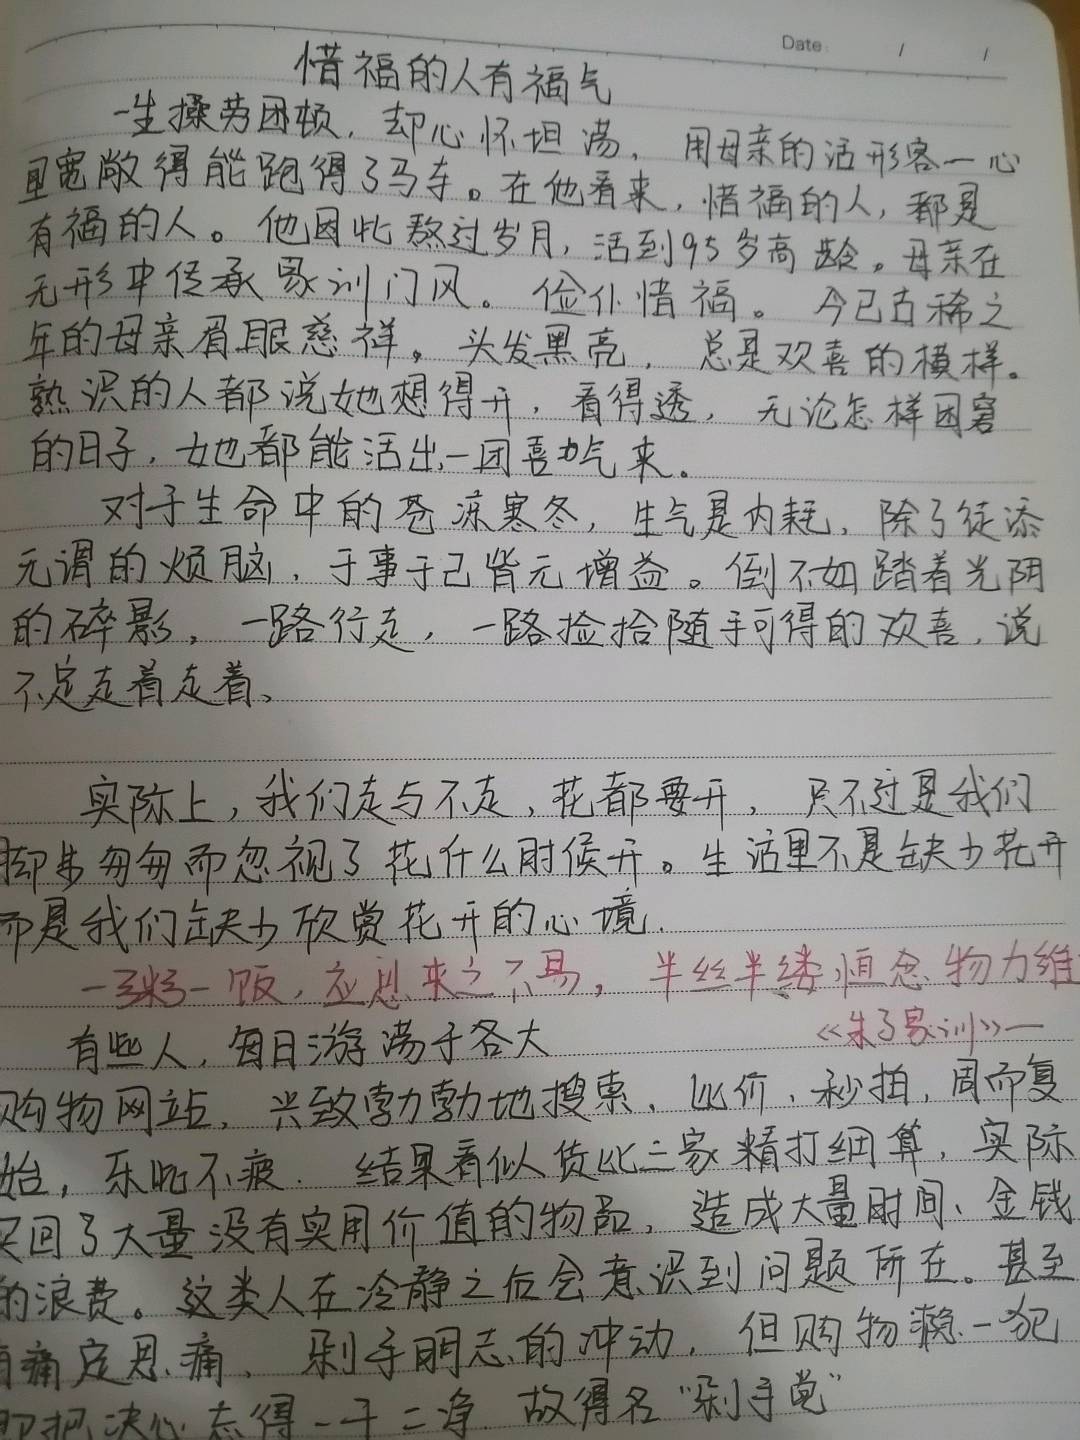 Date: / /
惜福的人有福气
一生操劳困顿，却心怀坦荡，用母亲的话形容一心
里宽敞得能跑得了马车。在他看来，惜福的人，都是
有福的人。他因此熬过岁月，活到95岁高龄。母亲在
无形中传承家训门风。俭仆惜福。今已古稀之
年的母亲眉眼慈祥。头发黑亮，总是欢喜的模样。
熟识的人都说她想得开，看得透，无论怎样困窘
的日子，她都能活出一团喜气来。
对于生命中的苍凉寒冬，生气是内耗，除了徒添
无谓的烦脑，于事于己皆无增益。倒不如踏着光阴
的碎影，一路行走，一路捡拾随手可得的欢喜，说
不定走着走着、
实际上，我们走与不走，花都要开，只不过是我们
脚步匆匆而忽视了花什么时候开。生活里不是缺少花开
而是我们缺少欣赏花开的心境.
一粥一饭，应思来之不易，半丝半缕恒念物力维
有些人，每日游荡于各大
《朱子家训》—
购物网站，兴致勃勃地搜索、比价、秒拍，周而复
始，乐此不疲. 结果看似货比三家精打细算，实际
买回了大量没有实用价值的物品，造成大量时间、金钱
的浪费。这类人在冷静之后会意识到问题所在。甚至
有痛定思痛，剁手明志的冲动，但购物瘾一犯
即把决心忘得一干二净. 故得名“剁手党”